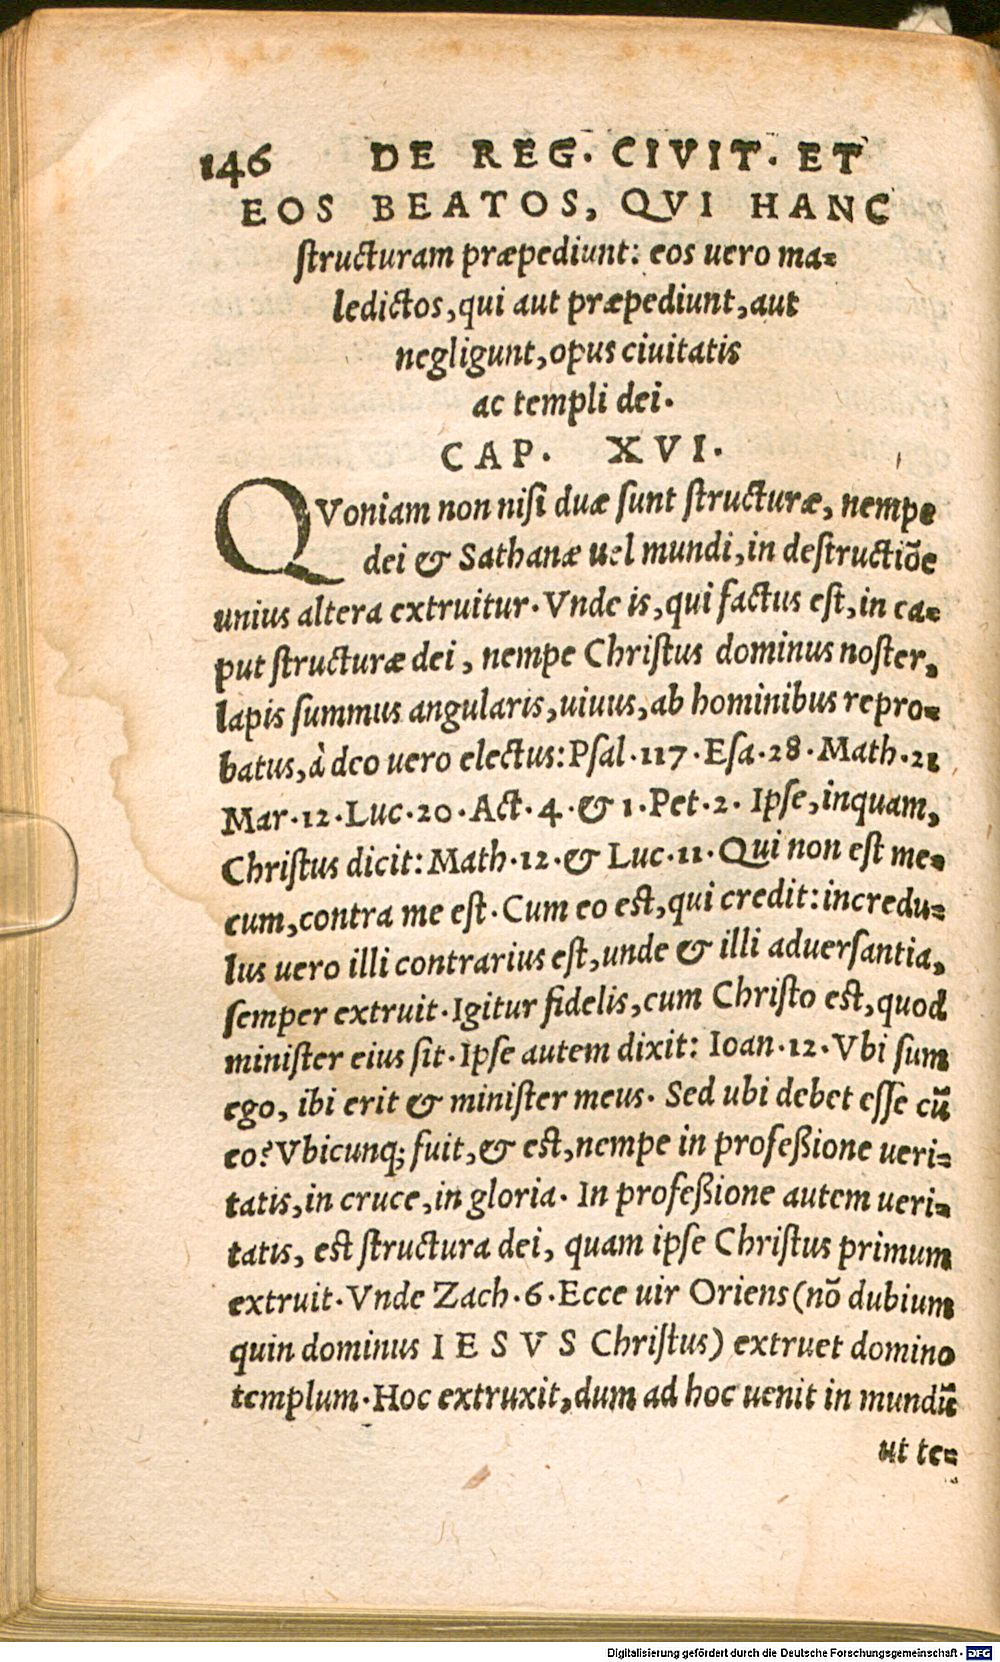 146 DE REG. CIVIT. ET
EOS BEATOS, QVI HANC
structuram præpediunt: eos uero ma=
ledictos, qui aut præpediunt, aut
negligunt, opus ciuitatis
ac templi dei.
CAP. XVI.
QVoniam non nisi duæ sunt structuræ, nempe
dei & Sathanæ uel mundi, in destructiõe
unius altera extruitur. Vnde is, qui factus est, in ca=
put structuræ dei, nempe Christus dominus noster,
lapis summus angularis, uiuus, ab hominibus repro=
batus, à deo uero electus: Psal. 117. Esa. 28. Math. 21
Mar. 12. Luc. 20. Act. 4. & 1. Pet. 2. Ipse, inquam,
Christus dicit: Math. 12. & Luc. 11. Qui non est me=
cum, contra me est. Cum eo est, qui credit: incredu=
lus uero illi contrarius est, unde & illi aduersantia,
semper extruit. Igitur fidelis, cum Christo est, quod
minister eius sit. Ipse autem dixit: Ioan. 12. Vbi sum
ego, ibi erit & minister meus. Sed ubi debet esse cũ
eo? Vbicunq; fuit, & est, nempe in profeßione ueri=
tatis, in cruce, in gloria. In profeßione autem ueri=
tatis, est structura dei, quam ipse Christus primum
extruit. Vnde Zach. 6. Ecce uir Oriens (nõ dubium
quin dominus IESVS Christus) extruet domino
templum. Hoc extruxit, dum ad hoc uenit in mundũ
ut te=
Digitalisierung gefördert durch die Deutsche Forschungsgemeinschaft - DFG